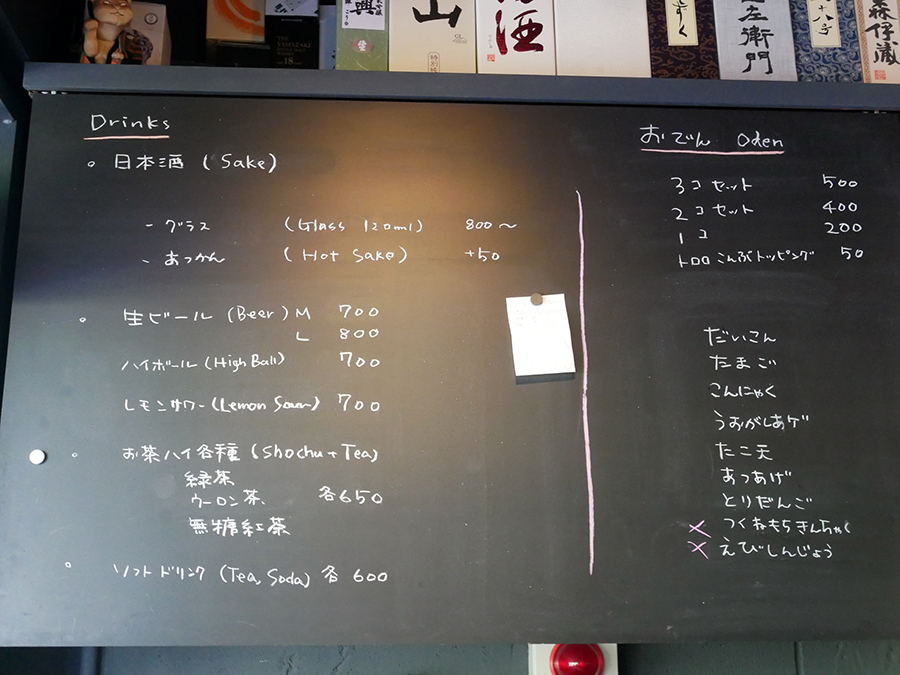 THE
YAMAZAKI
18
興
山
GL
特別純
酒
しずく
左衛門
十八
森伊蔵
Drinks
日本酒 (Sake)
- グラス (Glass 120ml) 800〜
- あつかん (Hot Sake) +50
生ビール (Beer) M 700
L 800
ハイボール (High Ball) 700
レモンサワー (Lemon Sour) 700
お茶ハイ各種 (Shochu + Tea)
緑茶
ウーロン茶 各650
無糖紅茶
ソフトドリンク (Tea, Soda) 各 600
おでん Oden
3コ セット 500
2コ セット 400
1コ 200
トロロこんぶトッピング 50
だいこん
たまご
こんにゃく
うおがしあげ
たこ天
あつあげ
とりだんご
× つくねもちきんちゃく
× えびしんじょう